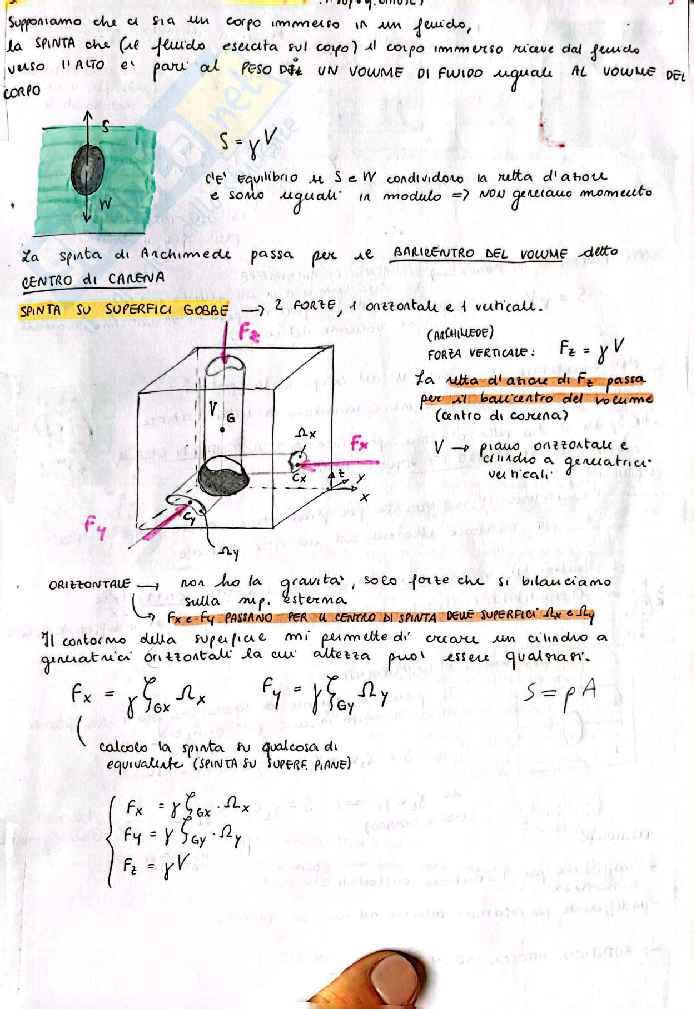 Supponiamo che ci sia un corpo immerso in un fluido,
la SPINTA che (il fluido esercita sul corpo) il corpo immerso riceve dal fluido
verso l'ALTO e' pari al PESO DI UN VOLUME DI FLUIDO uguale AL VOLUME DEL
CORPO
S
W
S = γV
C'E' EQUILIBRIO se S e W condividono la retta d'azione
e sono uguali in modulo => NON generano momento
La spinta di Archimede passa per il BARICENTRO DEL VOLUME detto
CENTRO di CARENA
SPINTA SU SUPERFICI GOBBE → 2 FORZE, 1 orizzontale e 1 verticale.
Fz
V
G
Ωx
Fx
Cx
z
y
x
Fy
Cy
Ωy
(ARCHIMEDE)
FORZA VERTICALE: Fz = γV
La retta d'azione di Fz passa
per il baricentro del volume
(centro di carena)
V → piano orizzontale e
cilindro a generatrici
verticali
ORIZZONTALE → non ho la gravita', solo forze che si bilanciano
sulla sup. esterna
↳ Fx e Fy PASSANO PER IL CENTRO DI SPINTA DELLE SUPERFICI Ωx e Ωy
Il contorno della superficie mi permette di creare un cilindro a
generatrici orizzontali la cui altezza puo' essere qualsiasi.
Fx = γ ζGx Ωx Fy = γ ζGy Ωy S = ρA
calcolo la spinta su qualcosa di
equivalente (SPINTA SU SUPERF. PIANE)
Fx = γ ζGx · Ωx
Fy = γ ζGy · Ωy
Fz = γV